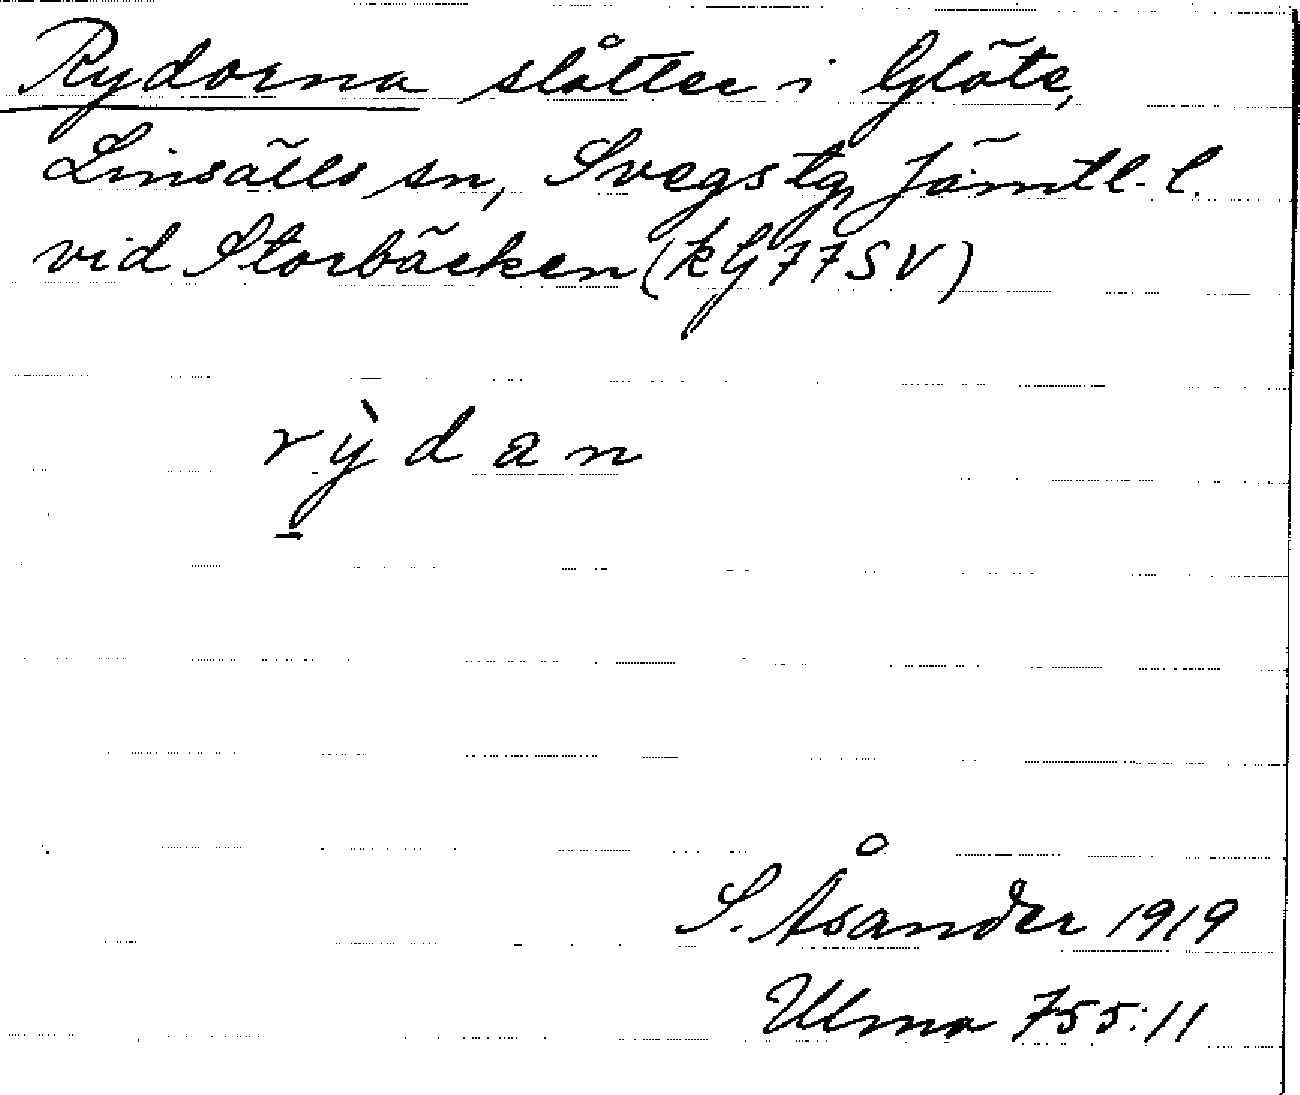 Rydorna slåtter i Glöte,
Linsälls sn, Svegs tg, Jämtl. l.
vid Storbäcken (kG77SV)
rỳdan
S. Åsander 1919
Ulma 755:11